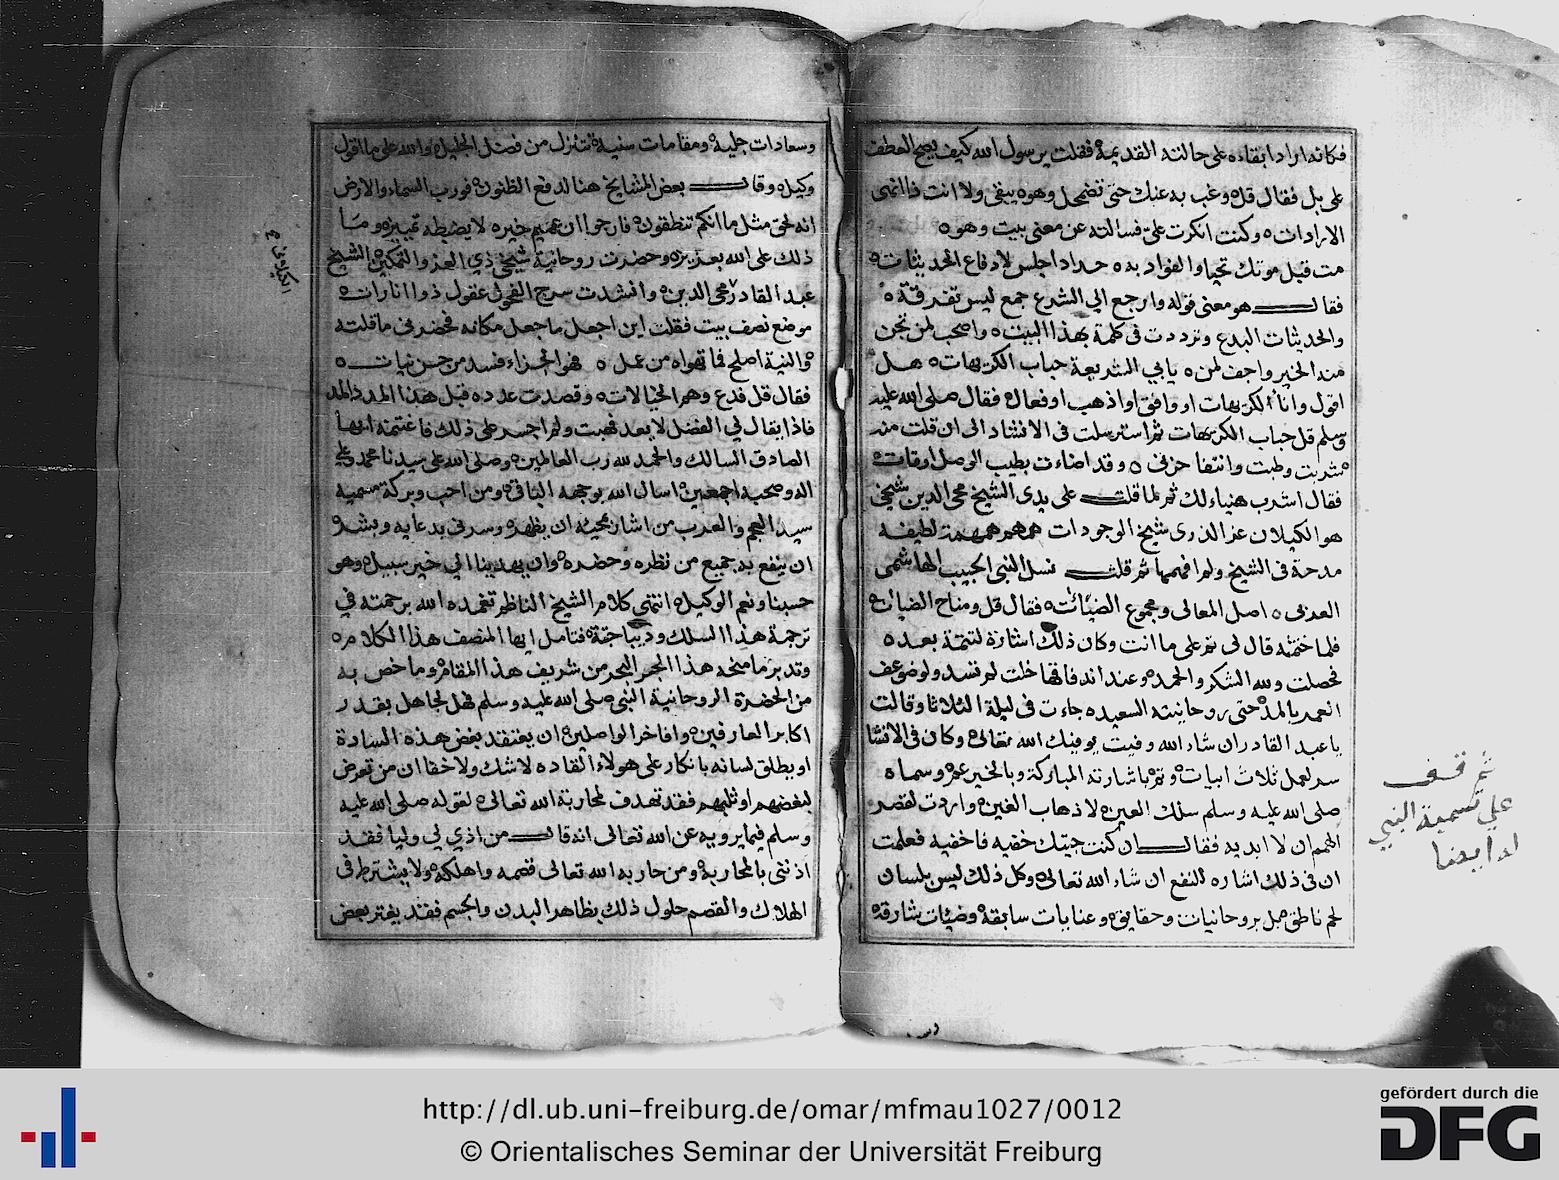 فكانه اراد ابقاءه على حالته القديمة فقلت يرسول الله كيف يصح العطف
على بل فقال قل وغب به عنك حتى تضمحل وهوه يبقى ولا انت ذا انمى
الارادات وكنت انكرت على فسالته عن معنى بيت وهو
مت قبل موتك تحيا والفواد بده
فقال هو معنى قوله وارجع الي الشرع جمع ليس تفرقة
والحديثات البدع وترددت فى كلمة بهذا البيت واصحب لمن تجن
منه الخير واجف لمن يابي الشريعة جباب الكريهات هل
اقول وانا الكريهات او وافق او اذهب او فعال فقال صلى الله عليه
وسلم قل جباب الكريهات ثم استرسلت فى الانشاد الى ان قلت منه
شربت وطبت وانتفا حزنى وقد اضاءت بطيب الوصل اوقات
فقال اشرب هنياء لك ثم لما قلت على يدى الشيخ محى الدين شيخى
هو الكيلان عز الذرى شيخ الوجودات همهم همهمة لطيفه
مدحة فى الشيخ ولم افهمها ثم قلت نسل النبى الحبيب الهاشمى
العربى اصل المعالى ومجموع فقال قل ومناح
فلما ختمته قال لى نم على ما انت وكان ذلك اشارة لتتمة بعده
فحصلت ولله الشكر والحمد وعند
العمد بالمد حتى روحانيته السعيده جاءت فى ليلة الثلاثا وقالت
يا عبد القادر ان شاء الله وفيت يوفيك الله تعالى وكان فى الانشا
سر لعمل ثلاث ابيات وتم باشارته المباركة وبالخير عم وسماه
صلى الله عليه وسلم سلك العين لاذهاب الغين واردت لقصر
الهمم ان لا ابديه فقال ان كنت جيتك خفيه فاخفيه فعلمت
ان فى ذلك اشاره للنفع ان شاء الله تعالى وكل ذلك ليس بلسان
لحم ناطق بل بروحانيات وحقايق وعنايات سابقة وضيئات شارقة
ثم قف
على تسمية النبي
له ايضا
وسعادات جلية ومقامات سنية تتنزل من فضل الجليل والله على ما اقول
وكيل وقال بعض المشايخ هنا لدفع الظنون فورب السماء والارض
انه لحق مثل ما انكم تنطقون فارجوا ان عميم خيره لا يضبطه تمييز وما
ذلك على الله بعزيز وحضرت روحانية شيخى ذي العز والتمكين الشيخ
عبد القادر محى الدين وانشدت سرج الفحول عقول ذوا انارات
موضع نصف بيت فقلت اين اجعل ما جعل مكانه فحضرنى ما قلته
والنية اصلح فما تهواه من عمل فهو الجزاء فسد من حسن نيات
فقال قل فدع وهم الخيالات وقصدت عدده قبل هذا المدد المدد
فاذا يقال لي الفضل لا يعد فهبت ولم اجسر على ذلك فاغتنمه ايها
الصادق السالك والحمد لله رب العالمين وصلى الله على سيدنا محمد وعلى
اله وصحبه اجمعين اسال الله بوجهه الباقى ومن احب وبركة سميه
سيد العجم والعرب من اشار بمحيه ان يظهره وسرنى بدعايه وبشره
ان ينفع به جميع من نظره وحضره وان يهدينا الي خير سبيل وهو
حسبنا ونعم الوكيل انتهى كلام الشيخ الناظم تغمده الله برحمته في
ترجمة هذا السلك وديباجته فتامل ايها المنصف هذا الكلام
وتدبر ما منحه هذا الحبر البحر من شريف هذا المقام وما خص به
من الحضرة الروحانية النبى صلى الله عليه وسلم فهل لجاهل بقدر
اكابر العارفين وافاخر الواصلين ان يعتقد بغض هذه السادة
او يطلق لسانه بانكار على هولاء القاده لا شك ولا خفا ان من تعرض
لبغضهم او ثلبهم فقد تهدف لمحاربة الله تعالى لقوله صلى الله عليه
وسلم فيما يرويه عن الله تعالى انه قال من اذي لي وليا فقد
اذننى بالمحاربة ومن حاربه الله تعالى قصمه واهلكه ولا يشترط فى
الهلاك والقصم حلول ذلك بظاهر البدن والجسم فقد يغتر بعض
http://dl.ub.uni-freiburg.de/omar/mfmau1027/0012
© Orientalisches Seminar der Universität Freiburg
gefördert durch die
DFG